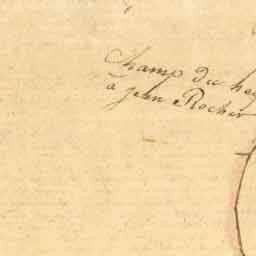 Champ du hay
à Jean Rocher